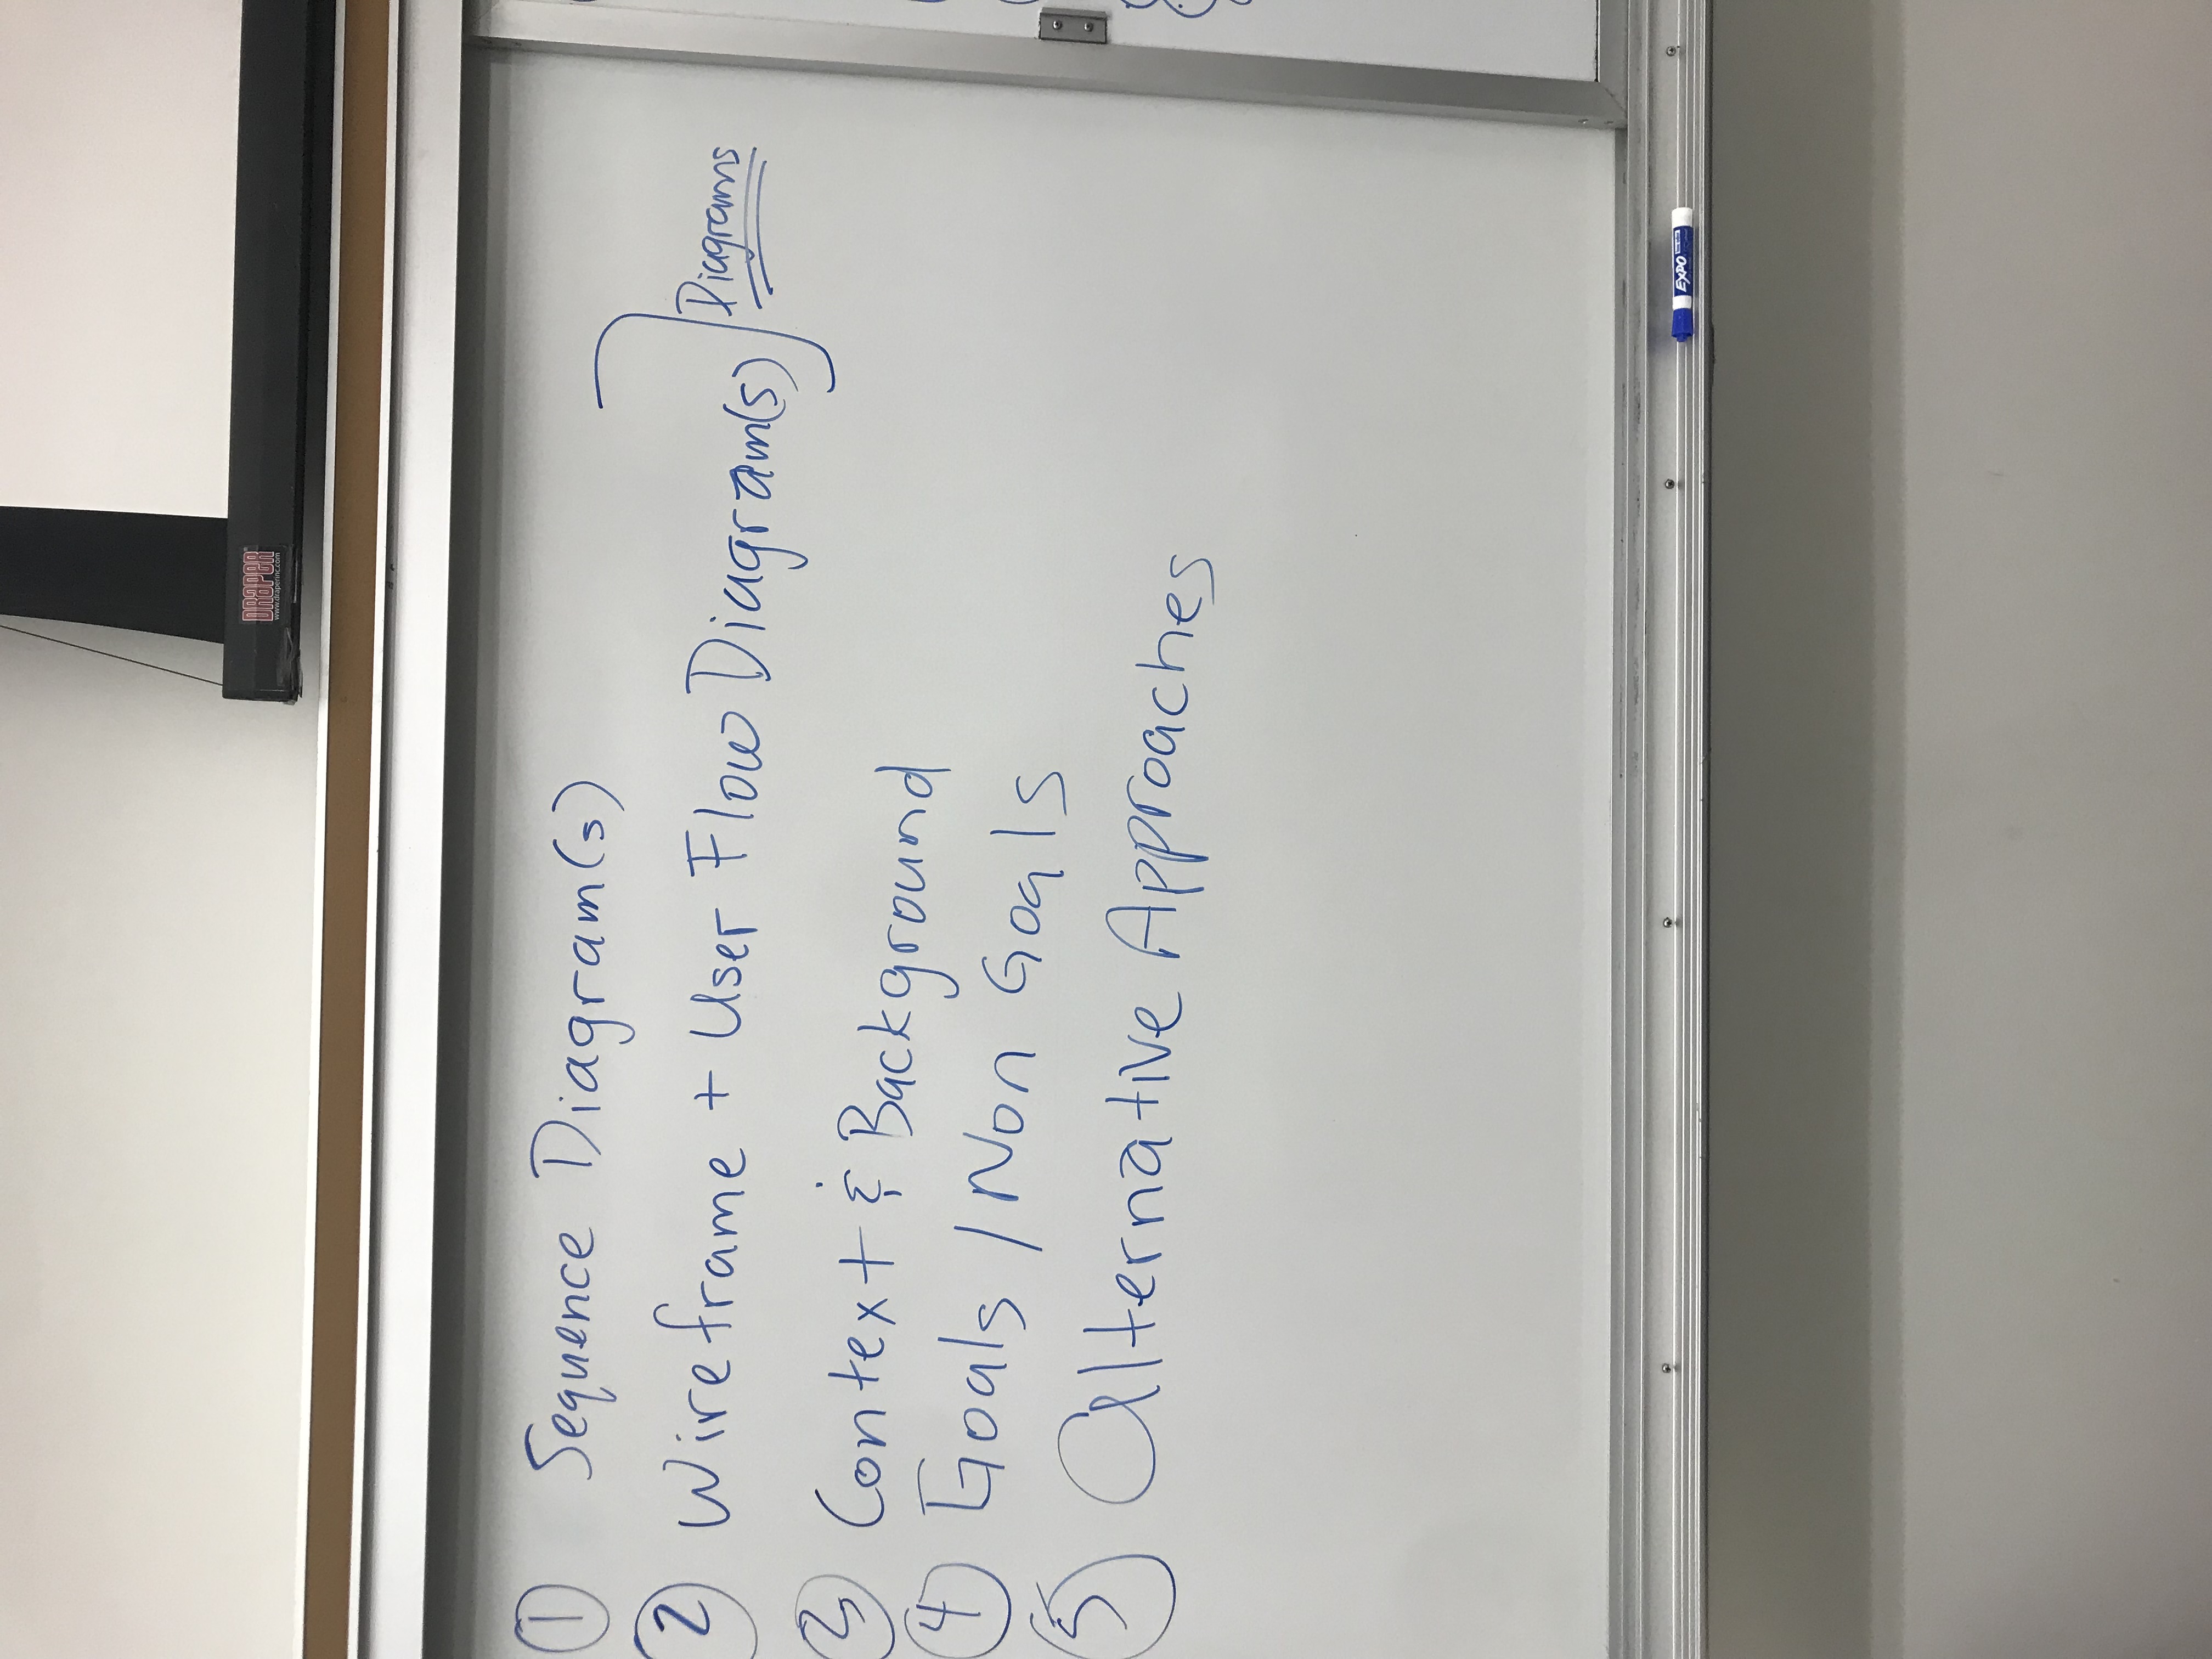 DRAPER
www.draperinc.com
① Sequence Diagram(s)
② Wireframe + User Flow Diagram(s)
Diagrams
③ Context & Background
④ Goals / Non Goals
⑤ Alternative Approaches
EXPO